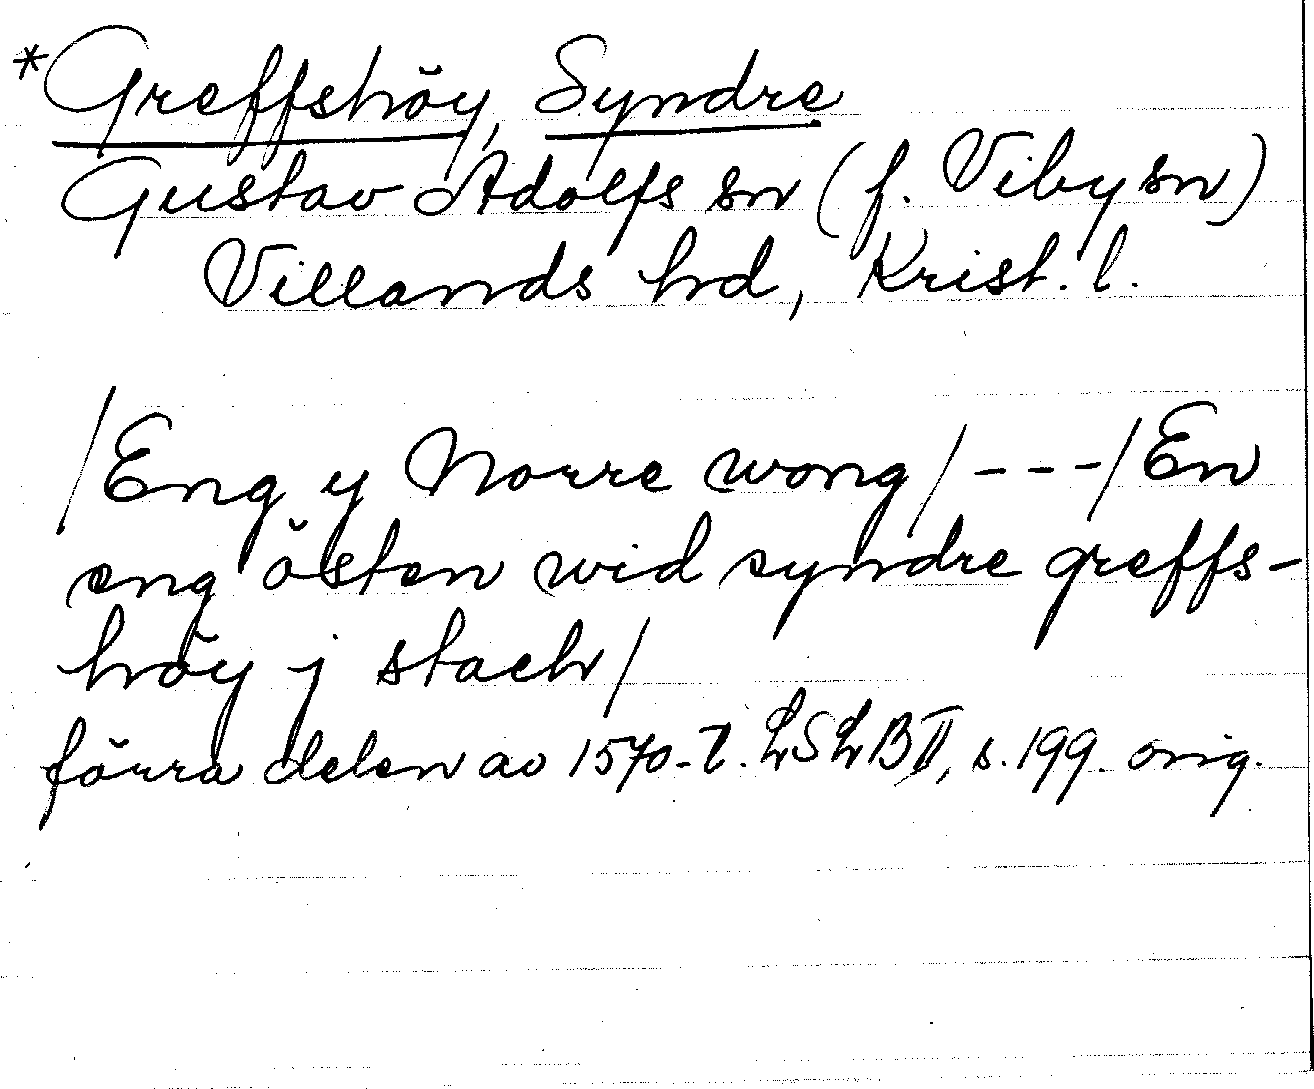 *Greffshöy, Syndre
Gustav Adolfs sn (f. Viby sn)
Villands hd, Krist. l.
/Eng y Norre wong/---/En
eng östen wid syndre greffs-
höy j stach/
förra delen av 1570-t. LSLB II, s. 199. orig.